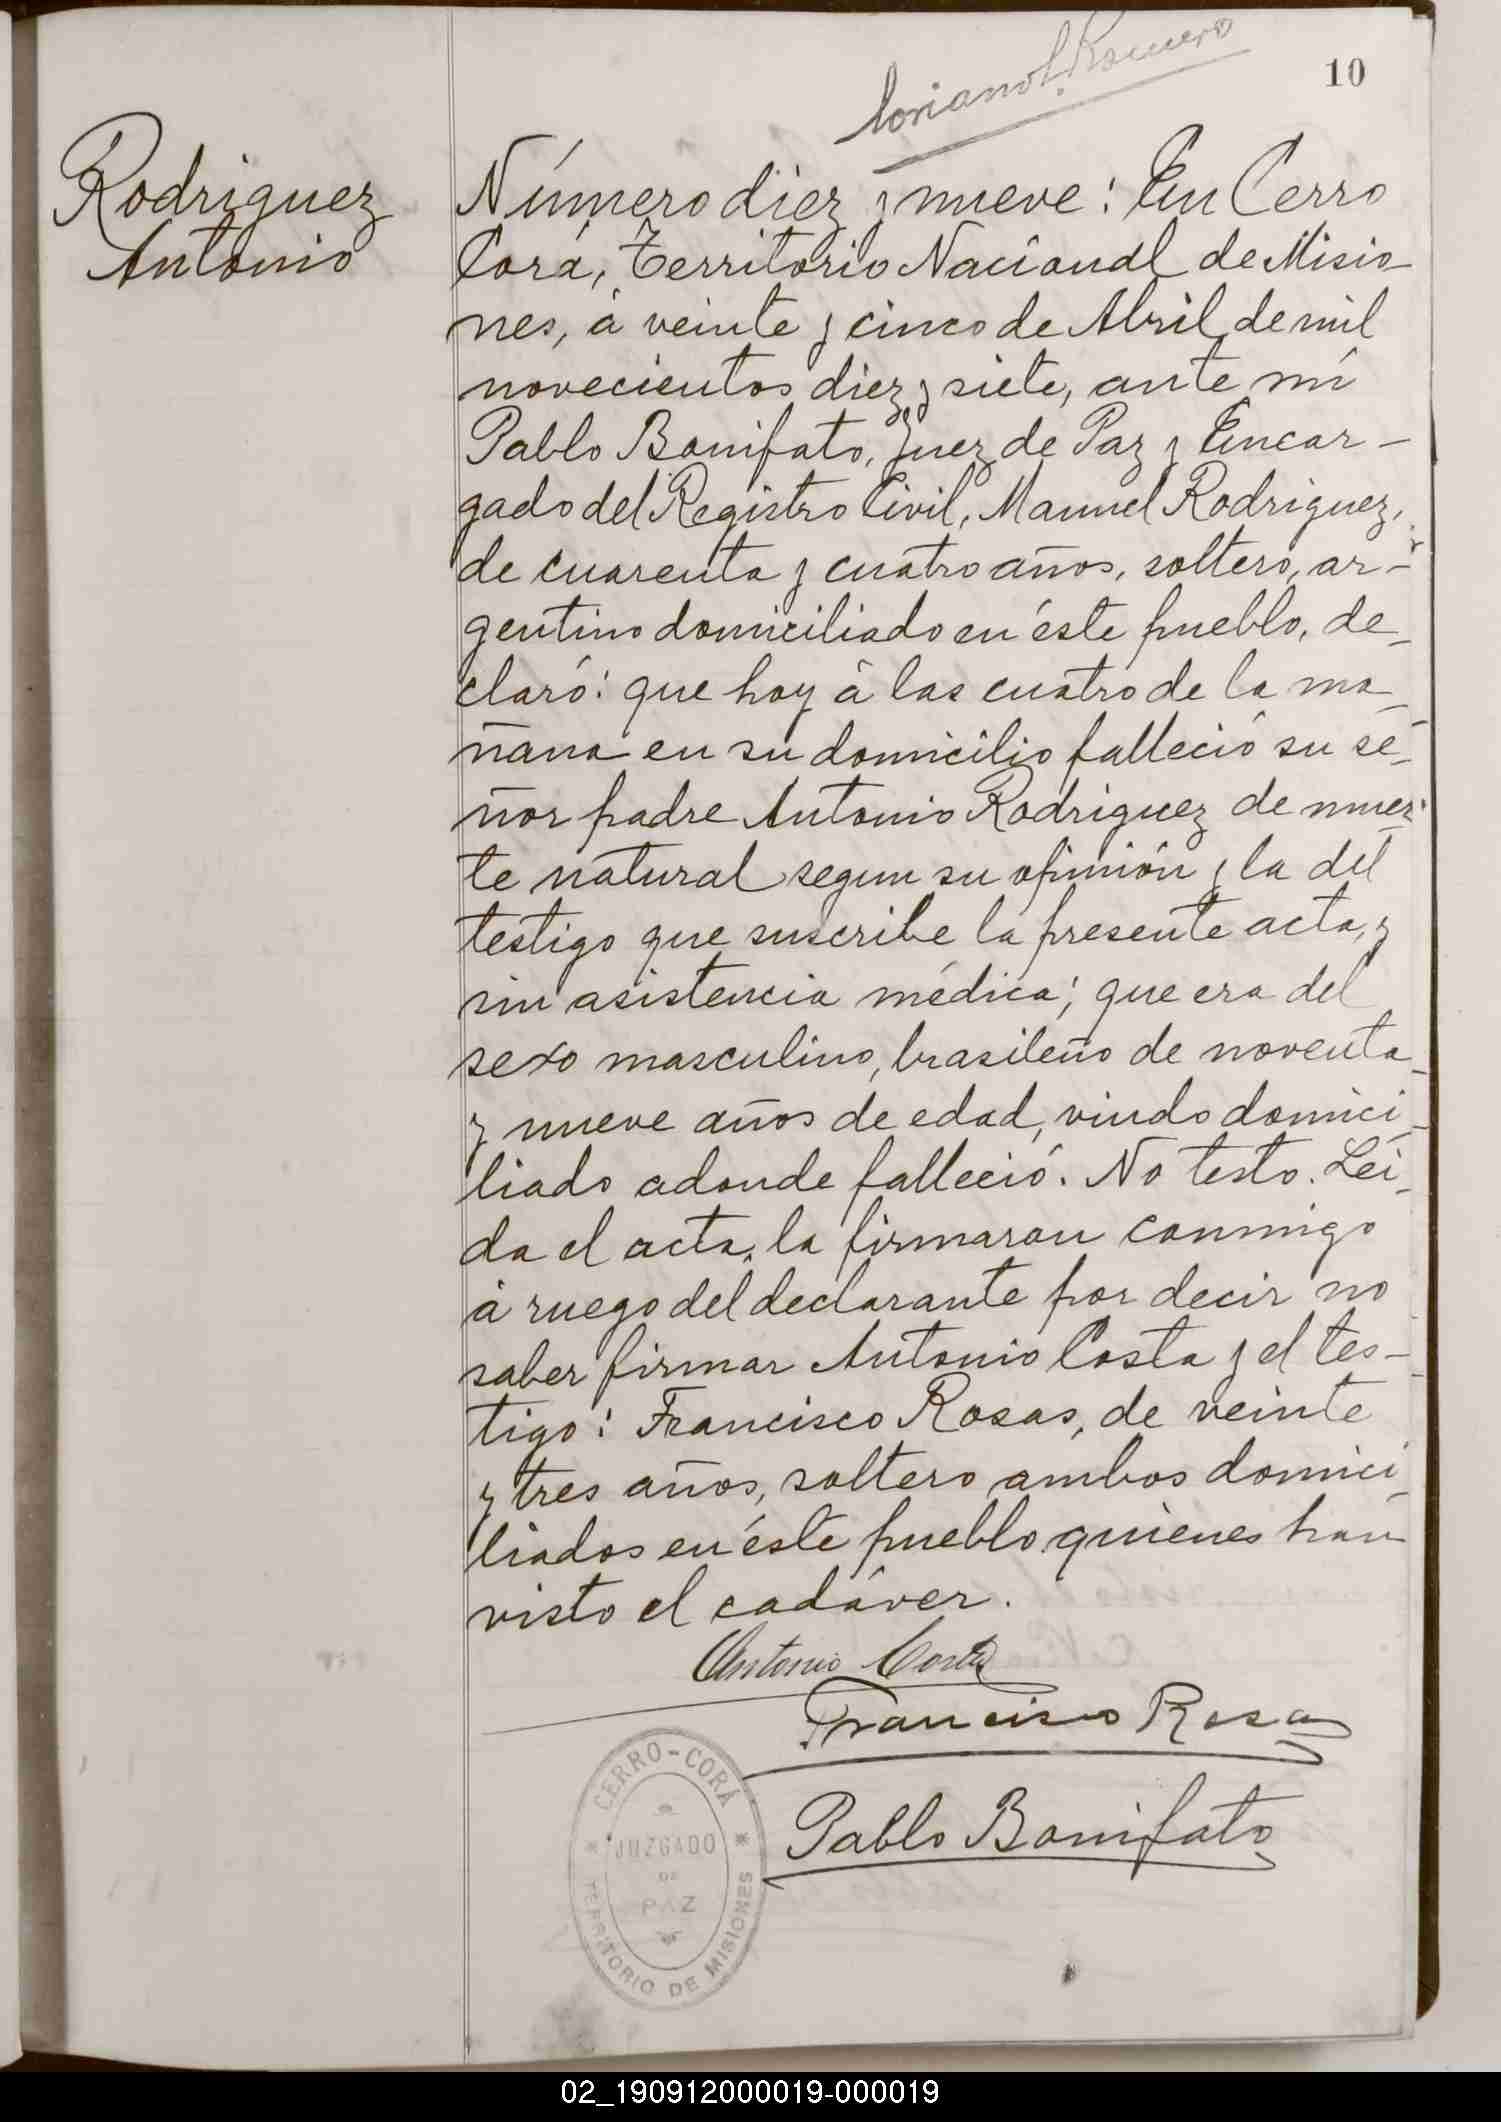 Loriano L. Romero
10
Rodriguez
Antonio
Número diez y nueve: En Cerro
Corá, Territorio Nacional de Misio-
nes, à veinte y cinco de Abril de mil
novecientos diez y siete, ante mí
Pablo Bonifato, Juez de Paz y Encar-
gado del Registro Civil, Manuel Rodriguez,
de cuarenta y cuatro años, soltero, ar-
gentino domiciliado en éste pueblo, de-
claró: que hoy à las cuatro de la ma-
ñana en su domicilio falleció su se-
ñor padre Antonio Rodriguez de muer-
te natural segun su opinión y la del
testigo que suscribe la presente acta, y
sin asistencia médica; que era del
sexo masculino, brasileño de noventa-
y nueve años de edad, viudo domici-
liado adonde falleció. No testo. Leí-
da el acta, la firmaron conmigo
à ruego del declarante por decir no
saber firmar Antonio Costa y el tes-
tigo: Francisco Rosas, de veinte
y tres años, soltero ambos domici-
liados en éste pueblo quienes han
visto el cadáver.
Antonio Costa
Francisco Rosas
Pablo Bonifato
CERRO-CORÁ
* JUZGADO *
DE
PAZ
TERRITORIO DE MISIONES
02_190912000019-000019